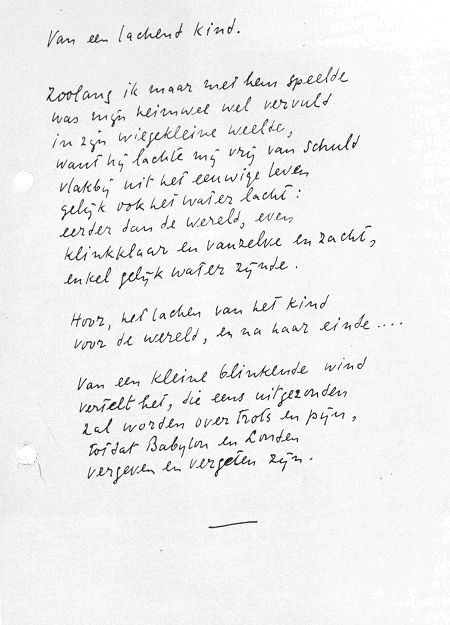 Van een lachend kind.
Zoolang ik maar met hem speelde
was mijn heimwee wel vervuld
in zijn wiegekleine weelde,
want hij lachte mij vrij van schuld
vlakbij uit het eeuwige leven
gelijk ook het water lacht:
eerder dan de wereld, even
klinkklaar en vanzelve en zacht,
enkel gelijk water zijnde.
Hoor, het lachen van het kind
voor de wereld, en na haar einde ....
Van een kleine blinkende wind
vertelt het, die eens uitgezonden
zal worden over trots en pijn,
totdat Babylon en Londen
vergeven en vergeten zijn.